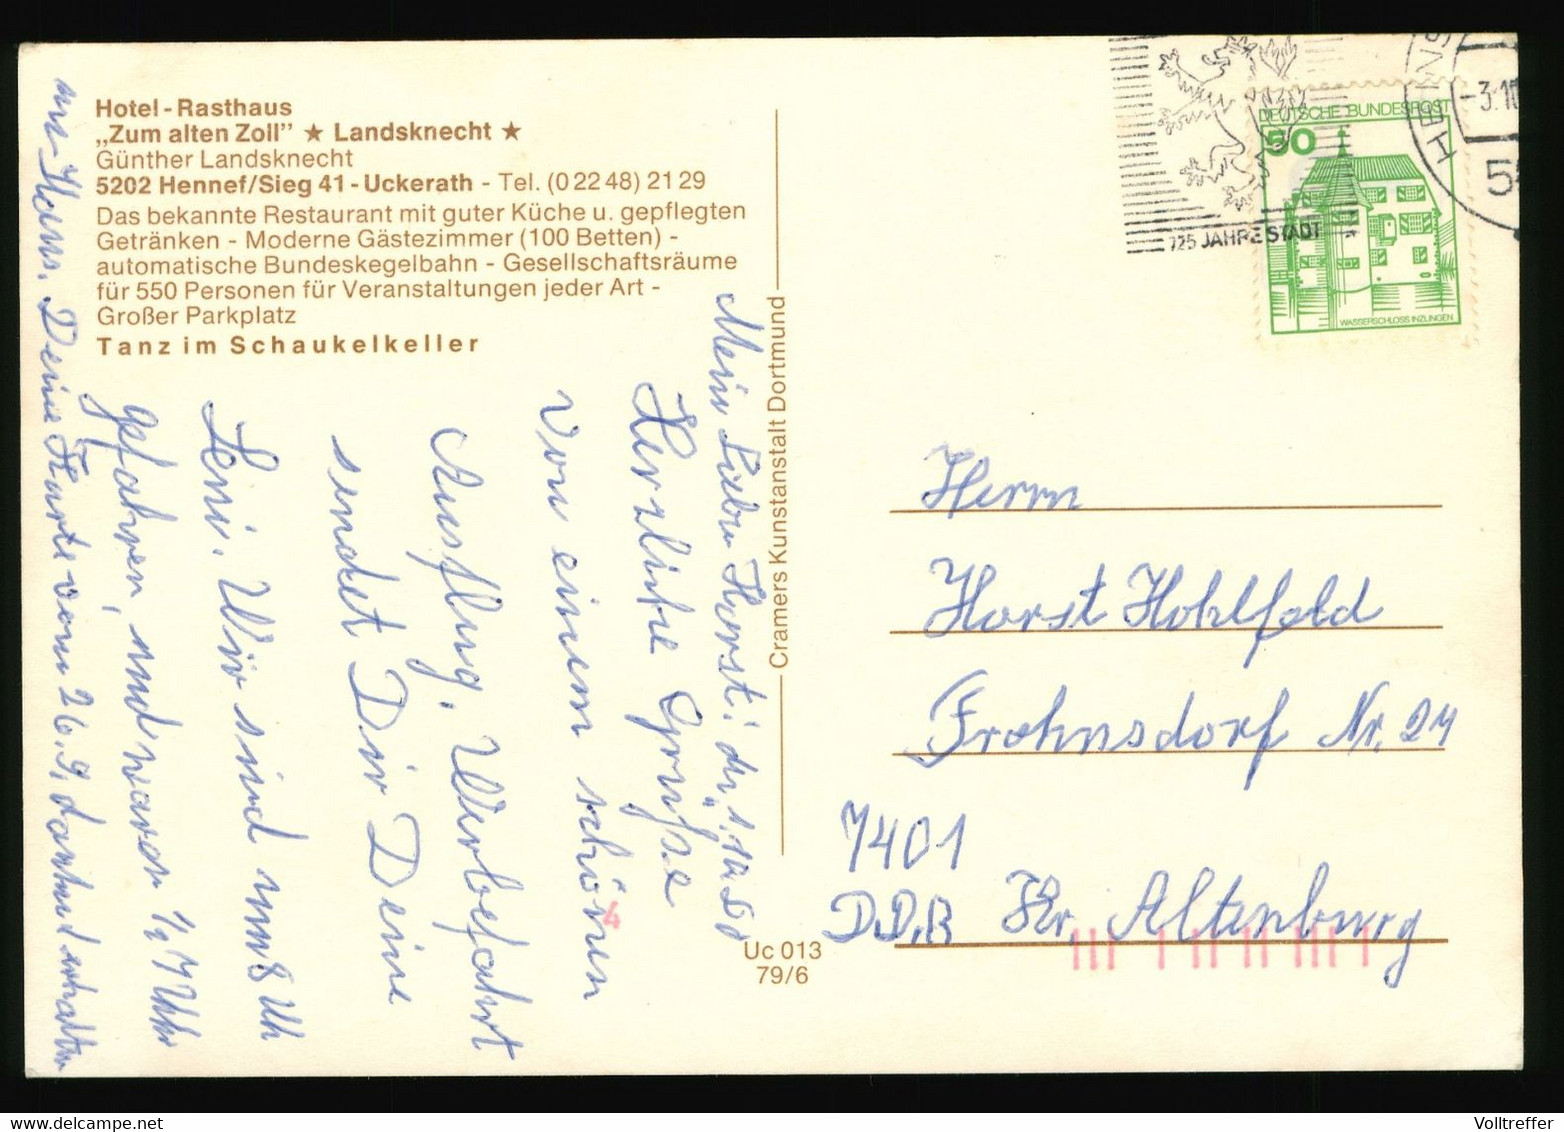 Hotel - Rasthaus
„Zum alten Zoll” ★ Landsknecht ★
Günther Landsknecht
5202 Hennef/Sieg 41 - Uckerath - Tel. (0 22 48) 21 29
Das bekannte Restaurant mit guter Küche u. gepflegten
Getränken - Moderne Gästezimmer (100 Betten) -
automatische Bundeskegelbahn - Gesellschaftsräume
für 550 Personen für Veranstaltungen jeder Art -
Großer Parkplatz
Tanz im Schaukelkeller
Mein Lieber Horst! d.
Herzliche Grüße
von einem schönen
Ausflug. Werbefahrt
sendet Dir Deine
Leni. Wir sind um 8 Uh
gefahren, und waren ½ 7 Uhr
zu Haus. Deine Karte vom 26.9. dankend erhalten
Cramers Kunstanstalt Dortmund
Uc 013
79/6
4
725 JAHRE STADT
HENNS
-3.10
DEUTSCHE BUNDESPOST
50
WASSERSCHLOSS INZLINGEN
Herrn
Horst Hohlfeld
Frohnsdorf Nr. 24
7401
D.D.R Kr. Altenburg